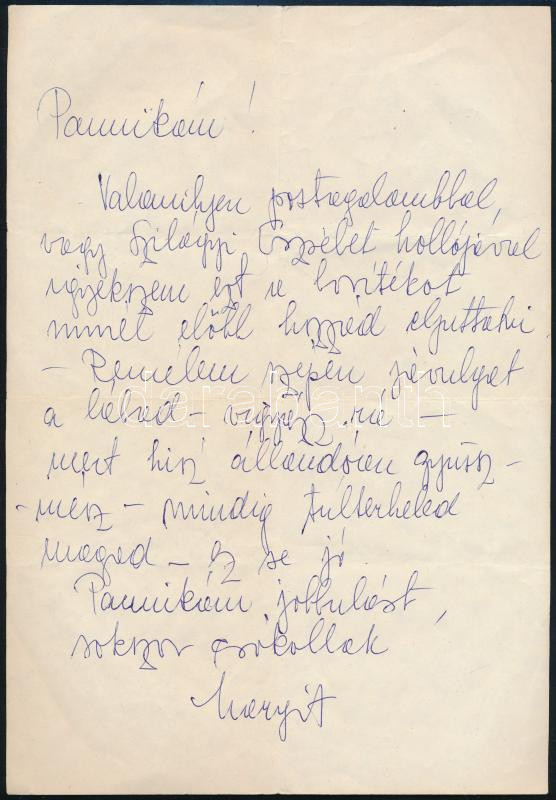 Pannikám!
Valamilyen postagalambbal,
vagy Szilágyi Erzsébet hollójával
igyekszem ezt a borítékot
minél előbb hozzád eljuttatni
– Remélem szépen javulgat
a lábad – vigyázz rá –
mert hisz állandóan gyüssz-
-mész – mindig túlterheled
magad – ez se jó
Pannikám, jobbulást,
sokszor csókollak
Margit
darabanth